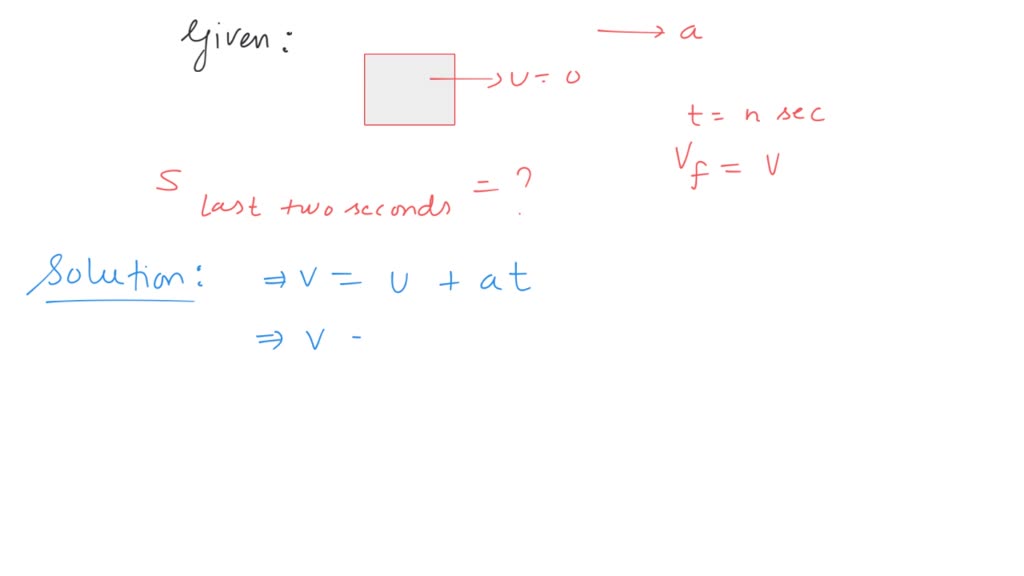 Given:
→ a
→ u = 0
t = n sec
Vf = V
S last two seconds = ?
Solution: ⇒ v = u + at
⇒ v -